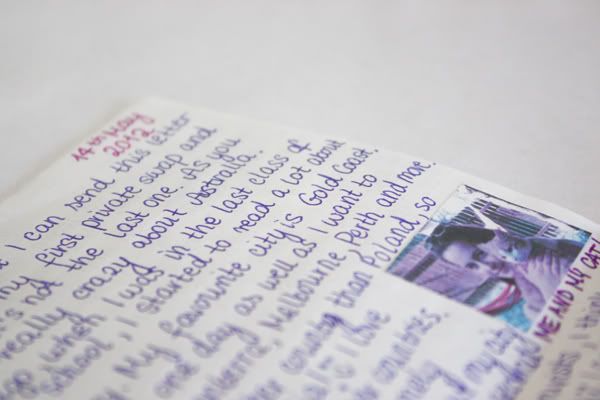 14th May
2012
I can send this letter
my first private swap and
not the last one. As you
really crazy about Australia.
when I was in the last class of
school, I started to read a lot about
My favourite city is Gold Coast.
one day as well as I want to
Melbourne, Perth and more.
country than Poland, so
I love
countries.
and my
ME AND MY CAT!